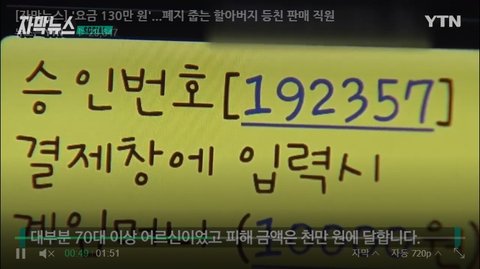 [자막뉴스] '요금 130만 원'...폐지 줍는 할아버지 등친 판매 직원
자막뉴스
YTN
승인번호[192357]
결제창에 입력시
대부분 70대 이상 어르신이었고 피해 금액은 천만 원에 달합니다.
00:49 01:51
자막
자동 720p